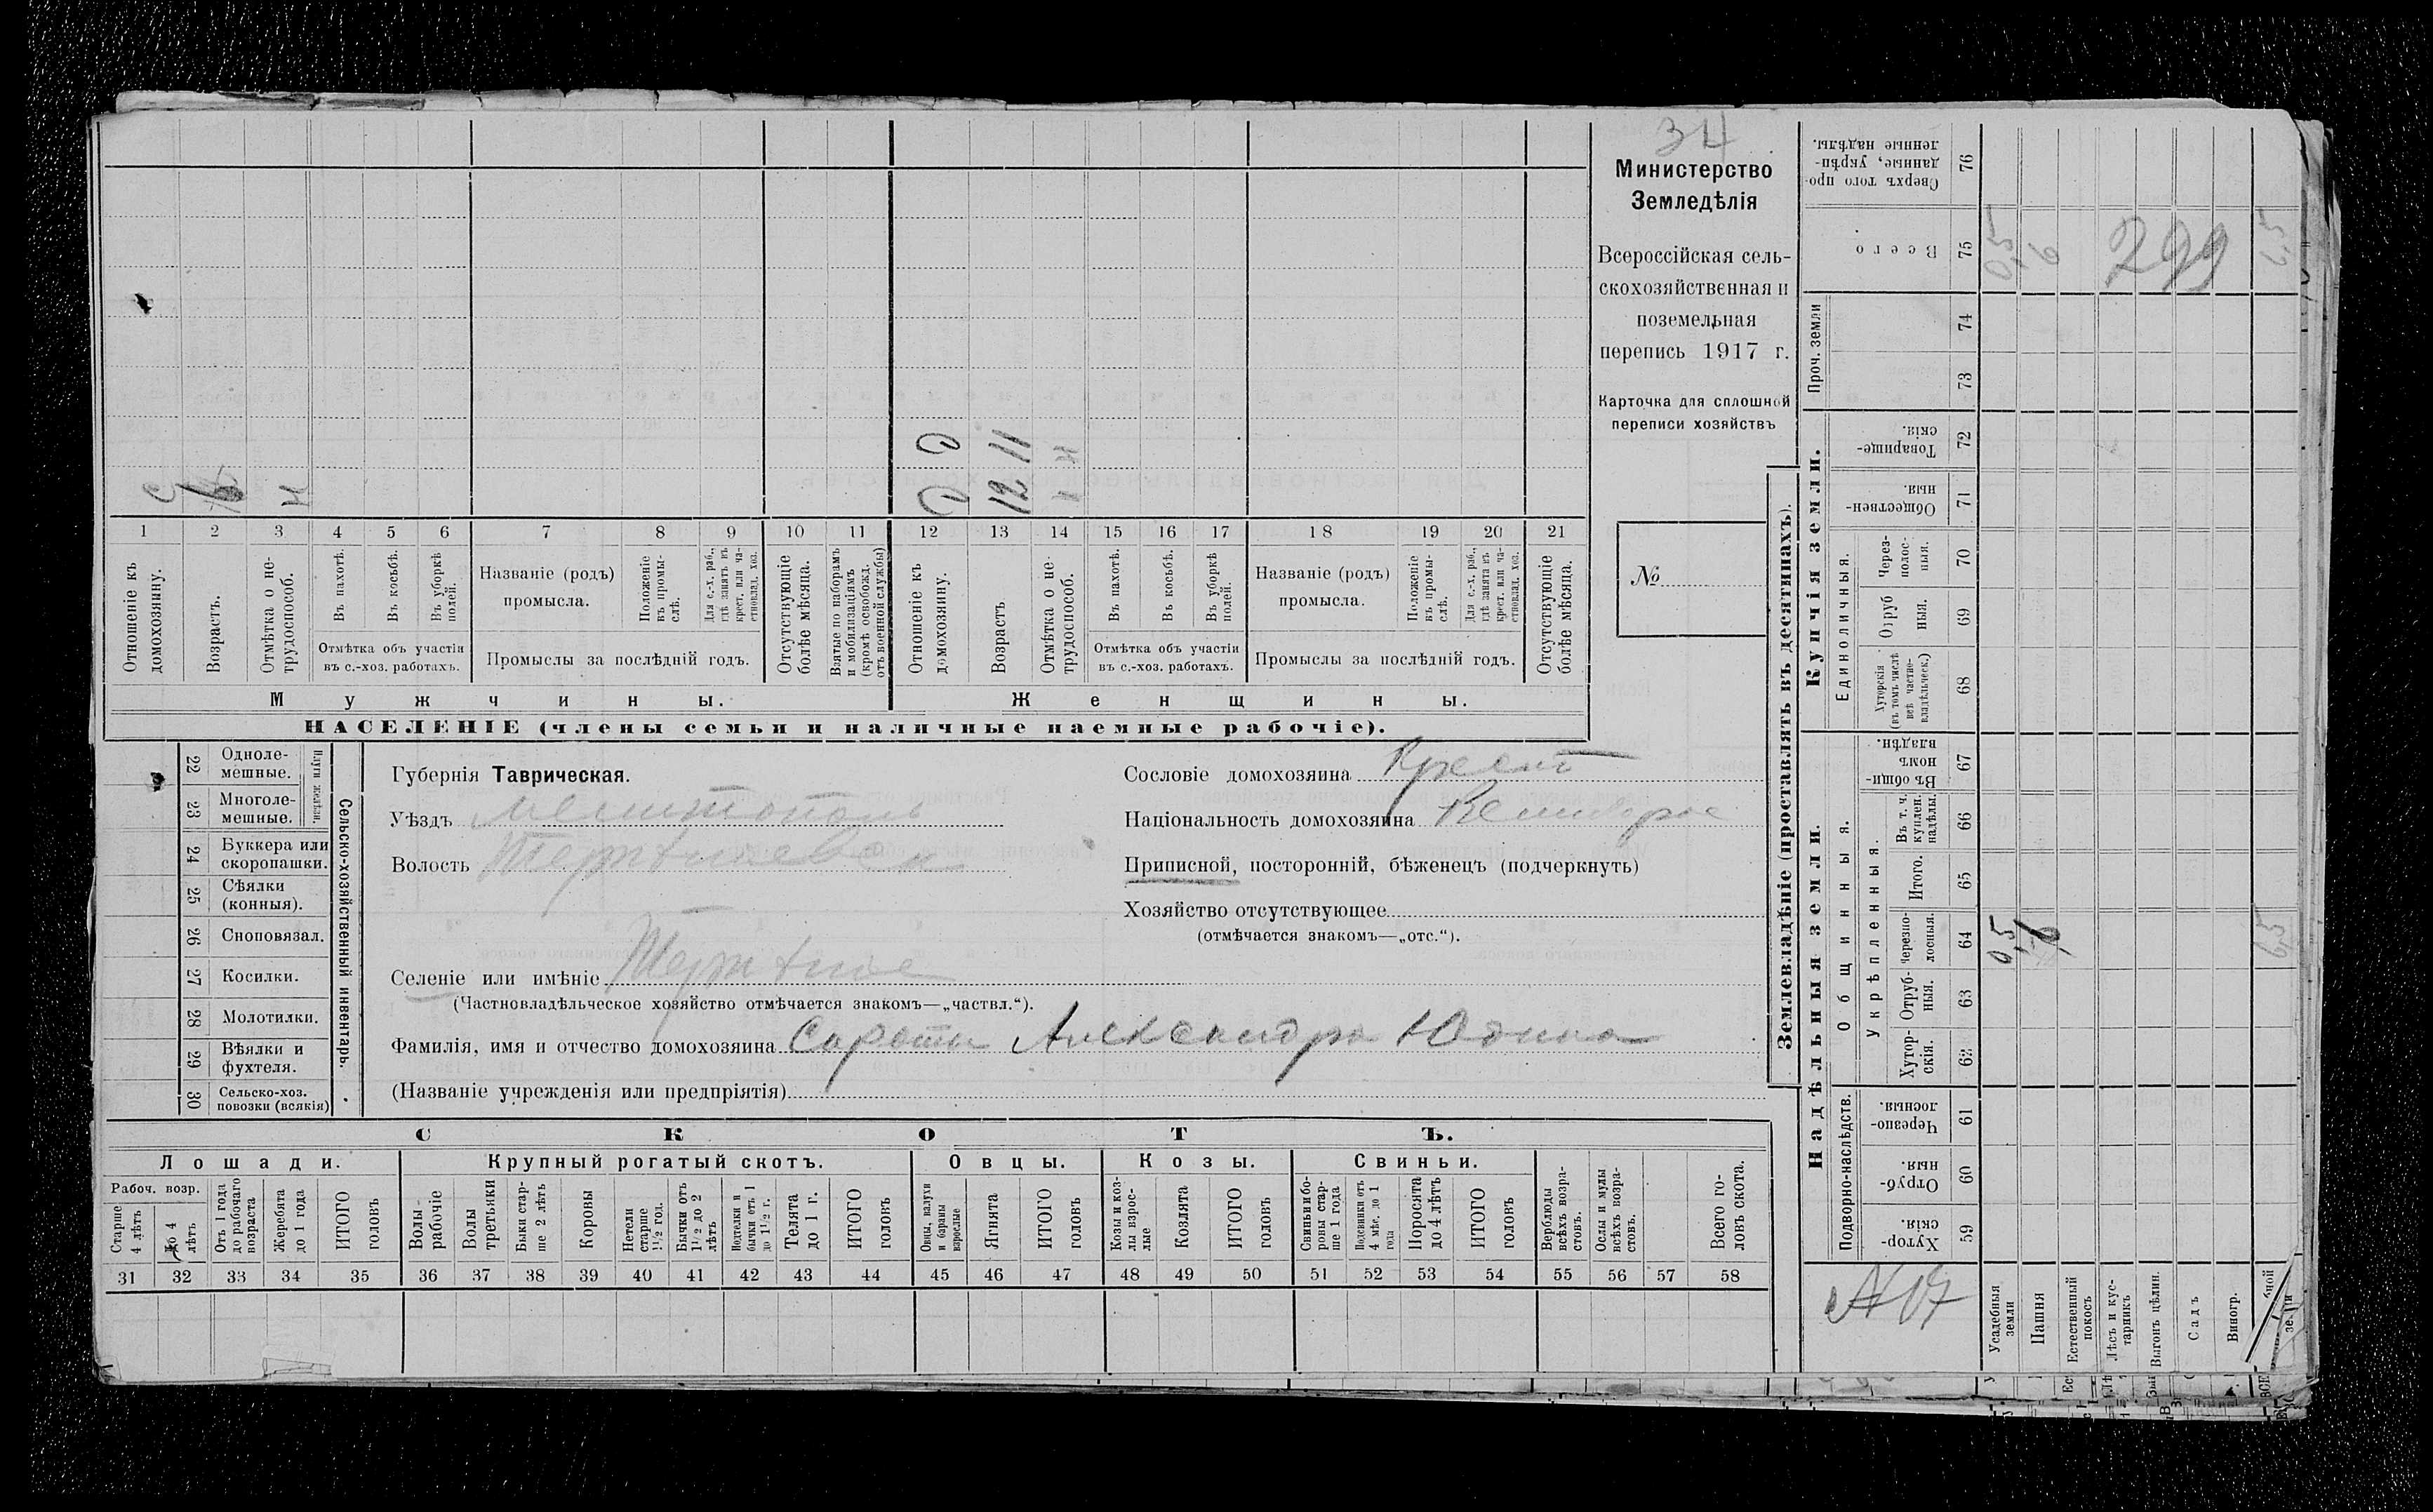 34
Министерство
Земледѣлія
Всероссійская сель-
скохозяйственная и
поземельная
перепись 1917 г.
Карточка для сплошной
переписи хозяйствъ
№
С
Н
Д Д
12 11
Н Н
1 2 3 4 5 6 7 8 9 10 11 12 13 14 15 16 17 18 19 20 21
Отношеніе къ домохозяину.
Возрастъ.
Отмѣтка о не-трудоспособ.
Въ пахотѣ.
Въ косьбѣ.
Въ уборкѣ полей.
Отмѣтка объ участіи въ с.-хоз. работахъ.
Названіе (родъ) промысла.
Положеніе въ промы-слѣ.
Для с.-х. раб., гдѣ занятъ въ крест. или ча-стновлад. хоз.
Промыслы за послѣдній годъ.
Отсутствующіе болѣе мѣсяца.
Взятые по наборамъ и мобилизаціямъ (кромѣ освобожд. отъ военной службы)
Отношеніе къ домохозяину.
Возрастъ
Отмѣтка о не-трудоспособ.
Въ пахотѣ.
Въ косьбѣ.
Въ уборкѣ полей.
Отмѣтка объ участіи въ с.-хоз. работахъ.
Названіе (родъ) промысла.
Положеніе въ промы-слѣ.
Для с.-х. раб., гдѣ занята въ крест. или ча-стновлад. хоз.
Промыслы за послѣдній годъ.
Отсутствующіе болѣе мѣсяца.
Мужчины.
Женщины.
НАСЕЛЕНІЕ (члены семьи и наличные наемные рабочіе).
22 Одноле-мешные.
23 Многоле-мешные.
Плуги желѣзн.
24 Буккера или скоропашки.
25 Сѣялки (конныя).
26 Сноповязал.
27 Косилки.
28 Молотилки.
29 Вѣялки и фухтеля.
30 Сельско-хоз. повозки (всякія)
Сельско-хозяйственный инвентарь.
Губернія Таврическая.
Уѣздъ Мелитополь
Волость
Селеніе или имѣніе
(Частновладѣльческое хозяйство отмѣчается знакомъ—„частвл.“).
Фамилія, имя и отчество домохозяина Сироты Александра Юдина
(Названіе учрежденія или предпріятія)
Сословіе домохозяина Крест
Національность домохозяина
Приписной, посторонній, бѣженецъ (подчеркнуть)
Хозяйство отсутствующее
(отмѣчается знакомъ—„отс.“).
СКОТЪ.
Лошади.
Крупный рогатый скотъ.
Овцы.
Козы.
Свиньи.
Рабоч. возр.
Старше 4 лѣтъ
До 4 лѣтъ
Отъ 1 года до рабочаго возраста
Жеребята до 1 года
ИТОГО головъ
Волы рабочіе
Волы третьяки
Быки стар-ше 2 лѣтъ
Коровы
Нетели старше 1½ год.
Бычки отъ 1½ до 2 лѣтъ
Подтелки и бычки отъ 1 до 1½ г.
Телята до 1 г.
ИТОГО головъ
Овцы, валухи и бараны взрослые
Ягнята
ИТОГО головъ
Козы и коз-лы взрос-лые
Козлята
ИТОГО головъ
Свиньи и бо-ровы стар-ше 1 года
Подсвинки отъ 4 мѣс. до 1 года
Поросята до 4 лѣтъ
ИТОГО головъ
Верблюды всѣхъ возра-стовъ.
Ослы и мулы всѣхъ возра-стовъ.
Всего го-ловъ скота.
31 32 33 34 35 36 37 38 39 40 41 42 43 44 45 46 47 48 49 50 51 52 53 54 55 56 57 58
Землевладѣніе (проставлять въ десятинахъ).
Купчія земли.
Надѣльныя земли.
Сверхъ того про-данные, укрѣп-ленные надѣлы. 76
Всего 75
0,5 6 299 6,5
Проч. земли 74 73
Товарище-скія. 72
Обществен-ныя. 71
Единоличныя.
Через-полос-ныя. 70
Отруб ныя. 69
Хуторскія (въ томъ числѣ всѣ частно-владѣльческ.) 68
Въ общин-номъ владѣн. 67
Общинныя.
Укрѣпленныя.
Въ т. ч. куплен. надѣлы. 66
Итого. 65
Черезпо-лосныя. 64
0,5 6 6,5
Отруб-ныя. 63
Хутор-скія. 62
Подворно-наслѣдств.
Черезпо-лосныя. 61
Отруб-ныя. 60
Хутор-скія. 59
Усадебныя земли
Пашня
Естественный покосъ
Лѣсъ и кус-тарникъ
Выгонъ цѣлин.
Садъ
Виногр.